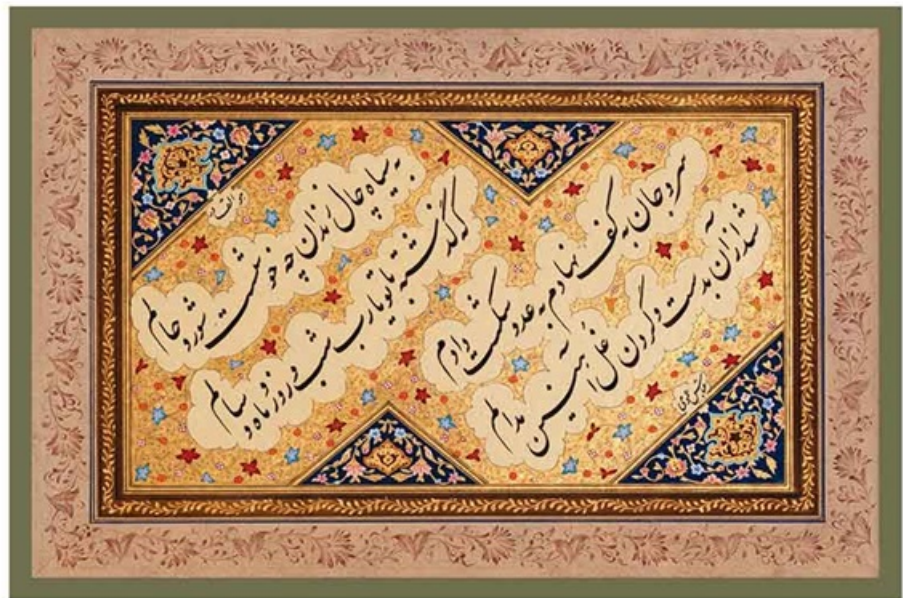 به سیاه چال زندان چه خوشست شور و حالم
که گذشته با تو یارب شب و روز و ماه و سالم
سر و جان به کف نهادم به عدو شکست دادم
شد از آن بدست و گردن غل آهنین مدالم